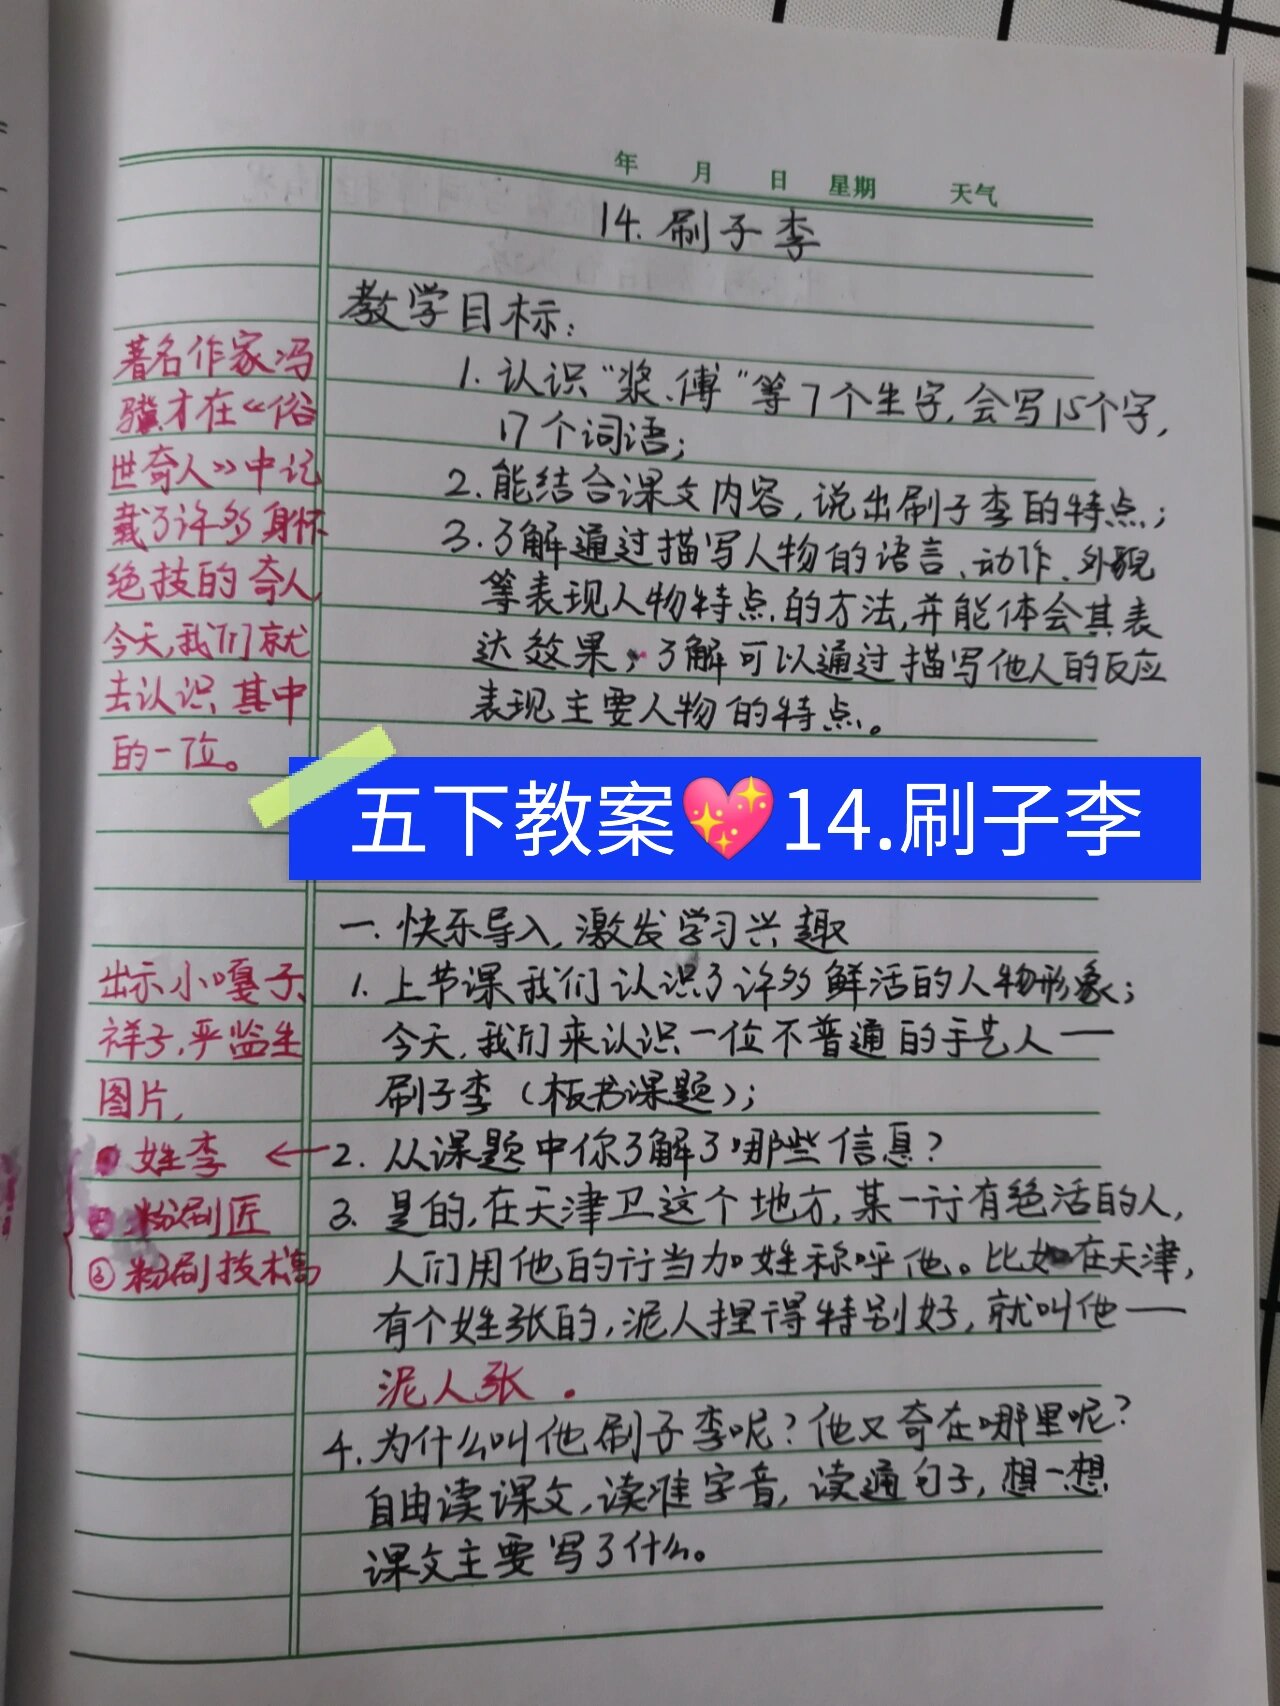 年 月 日 星期 天气
14. 刷子李
教学目标：
1. 认识“浆、傅”等7个生字，会写15个字，
17个词语；
2. 能结合课文内容，说出刷子李的特点；
3. 了解通过描写人物的语言、动作、外貌
等表现人物特点的方法，并能体会其表
达效果；了解可以通过描写他人的反应
表现主要人物的特点。
著名作家冯
骥才在《俗
世奇人》中记
载了许多身怀
绝技的奇人，
今天，我们就
去认识其中
的一位。
五下教案💖14.刷子李
一. 快乐导入，激发学习兴趣
1. 上节课我们认识了许多鲜活的人物形象；
今天，我们来认识一位不普通的手艺人——
刷子李（板书课题）；
2. 从课题中你了解了哪些信息？
3. 是的，在天津卫这个地方，某一行有绝活的人，
人们用他的行当加姓称呼他。比如在天津，
有个姓张的，泥人捏得特别好，就叫他——
泥人张．
4. 为什么叫他刷子李呢？他又奇在哪里呢？
自由读课文，读准字音，读通句子，想一想
课文主要写了什么。
出示小嘎子、
祥子，严监生
图片，
姓李 ←
粉刷匠
③粉刷技术高